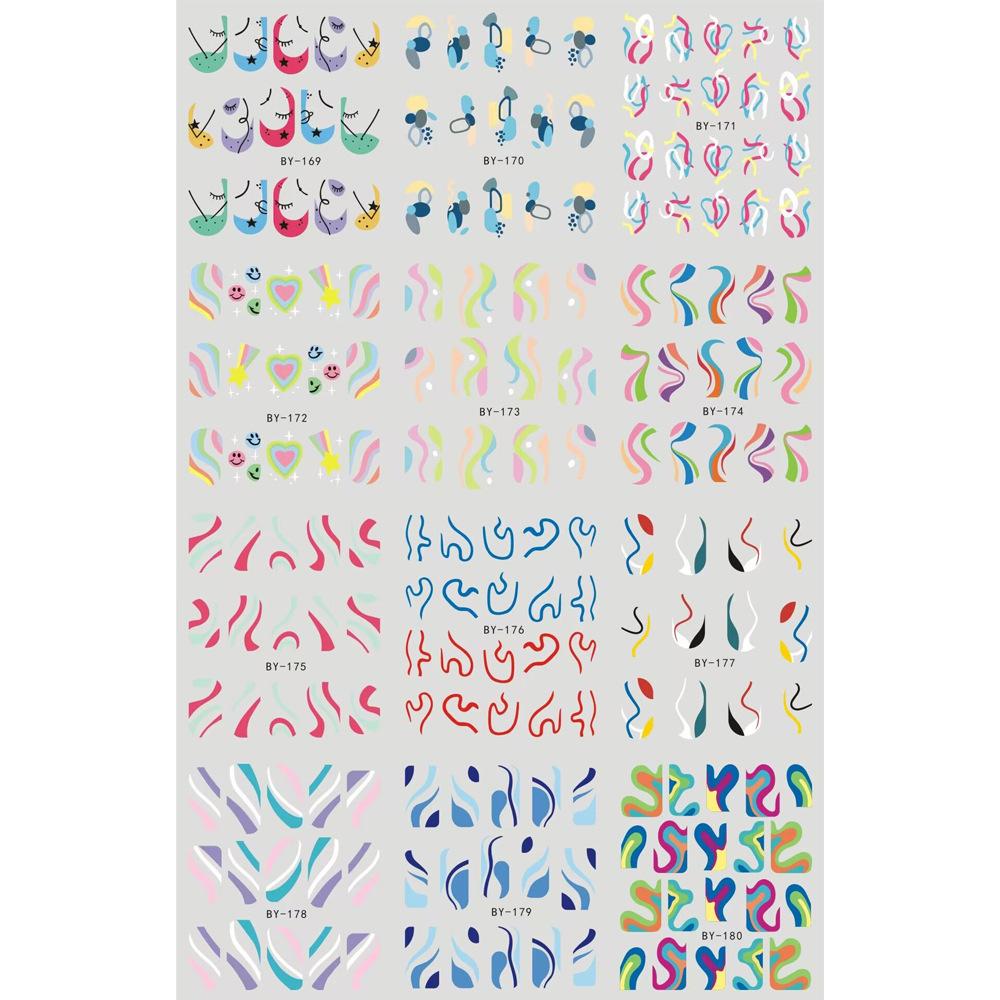 BY-169
BY-170
BY-171
BY-172
BY-173
BY-174
BY-175
BY-176
BY-177
BY-178
BY-179
BY-180